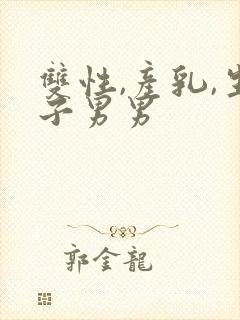 雙性,產乳,生
子男男
郭金龍